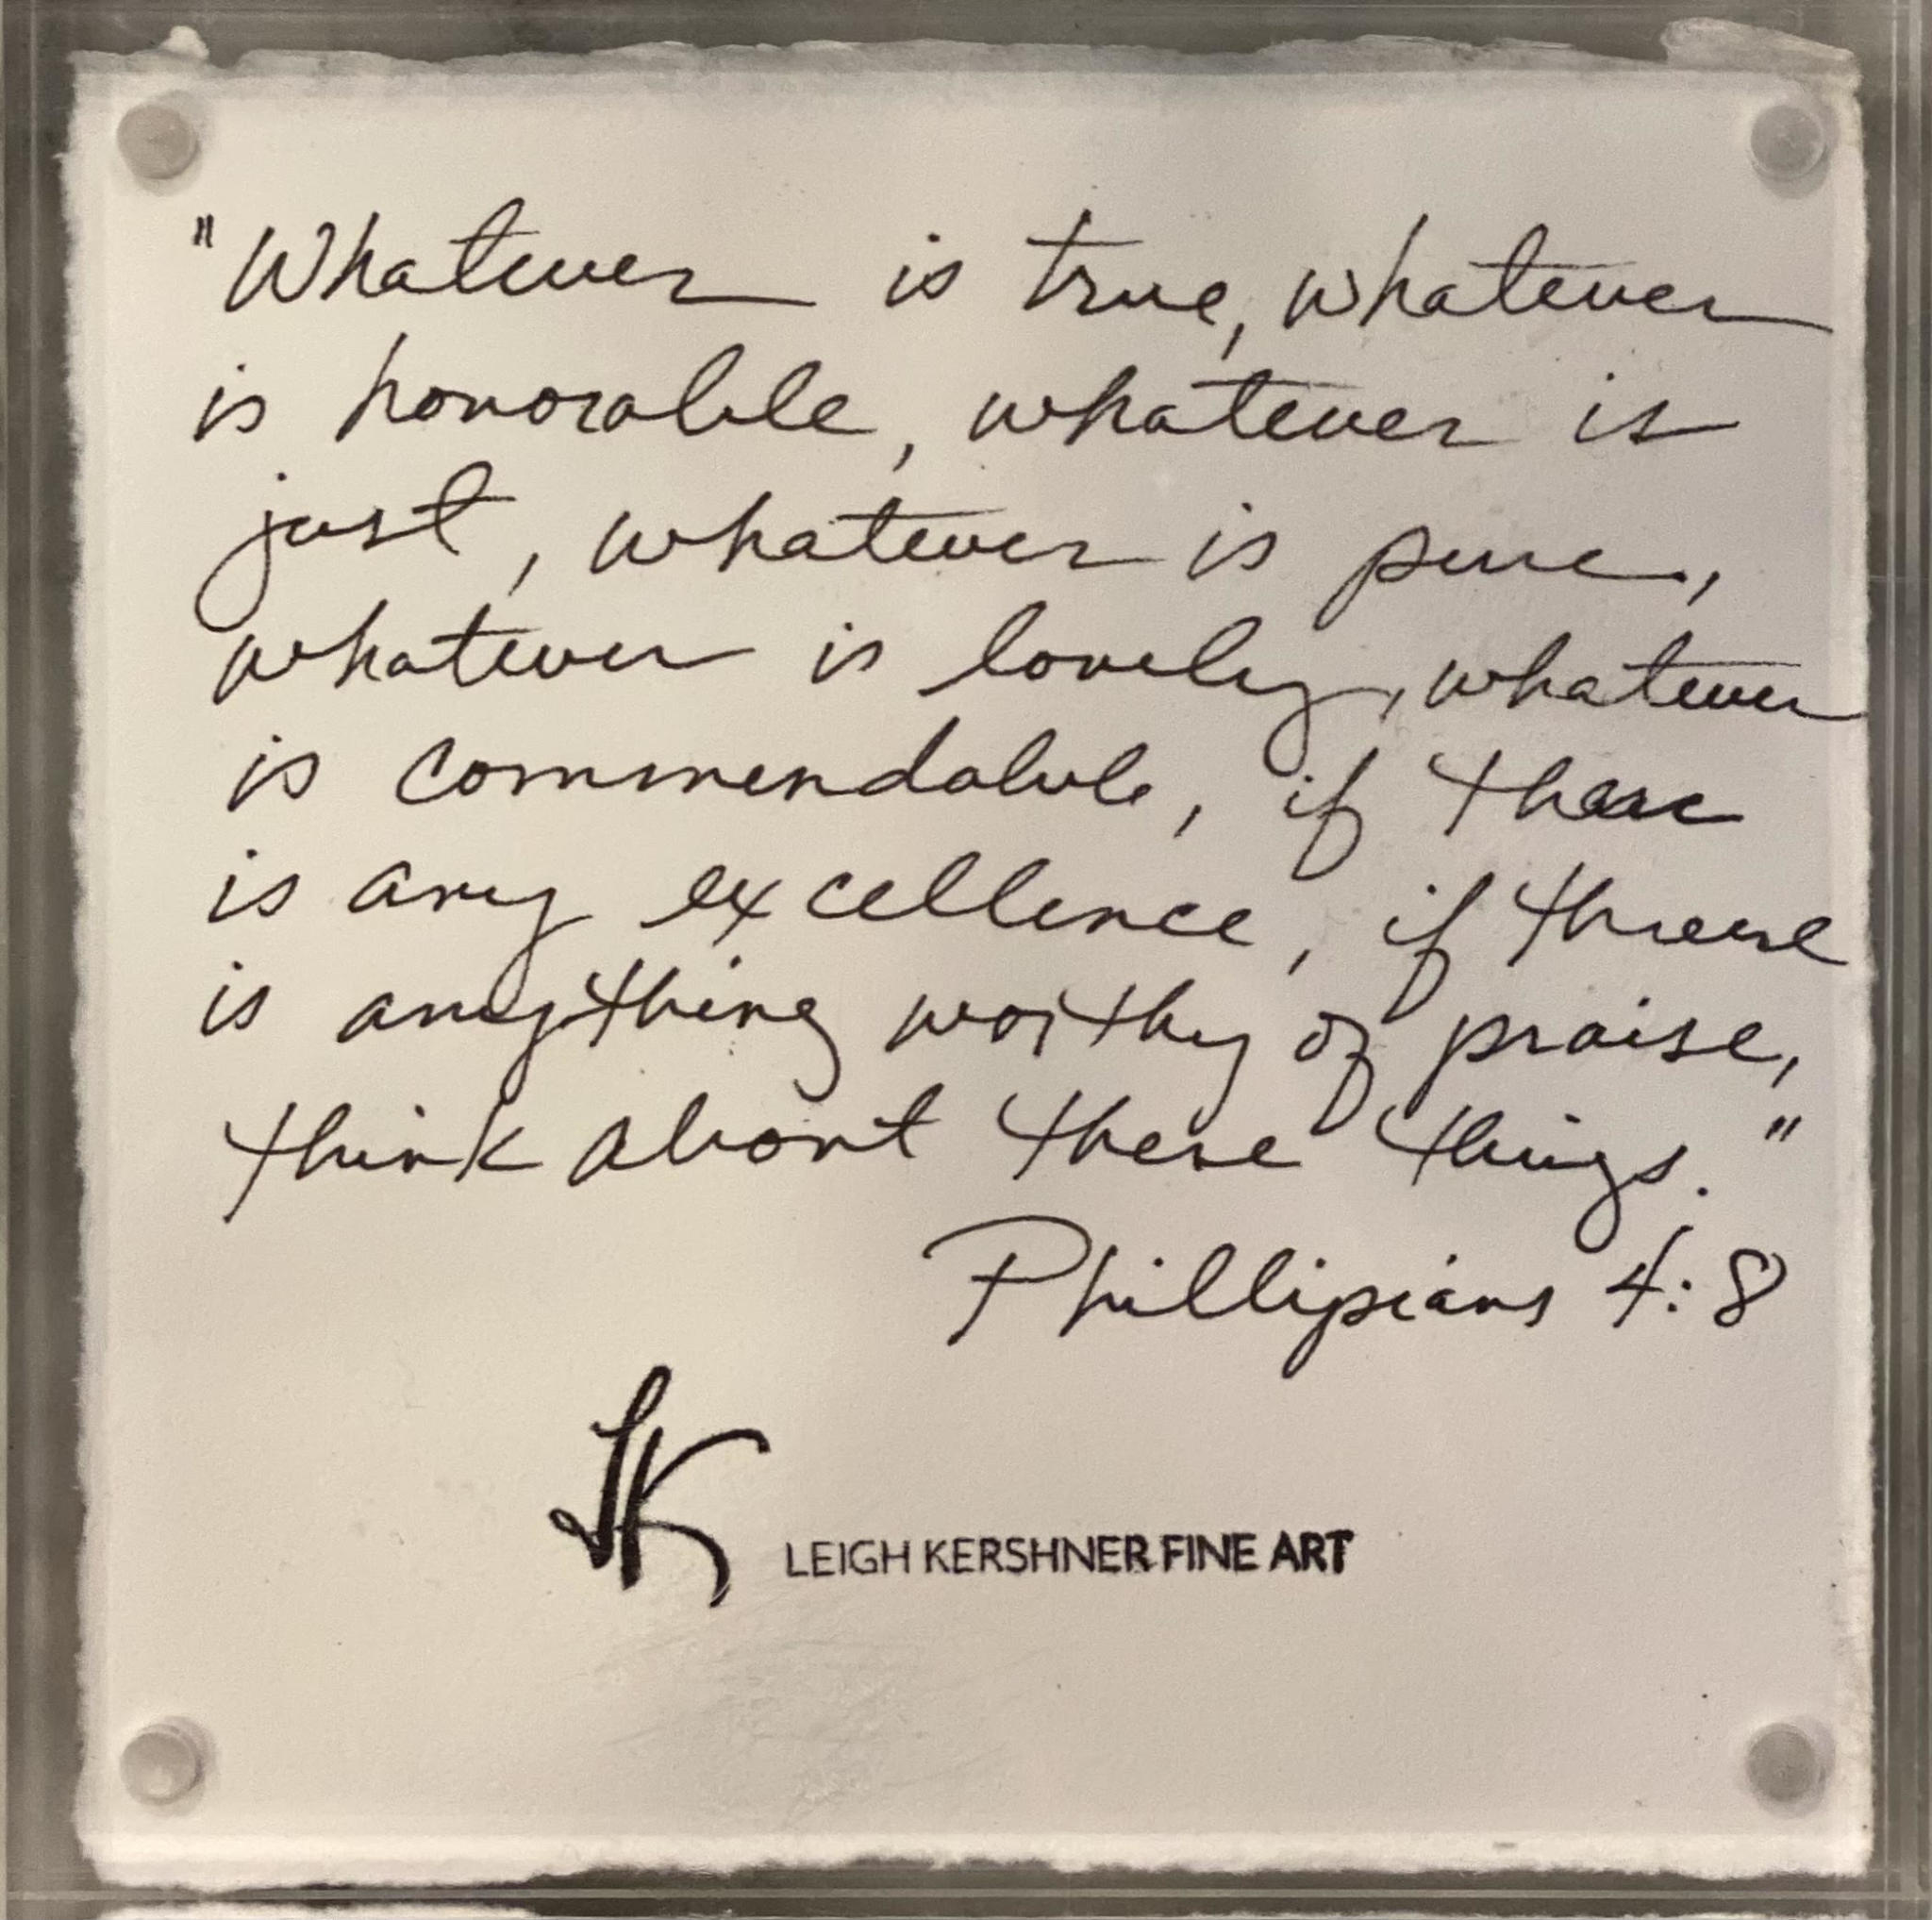 "Whatever is true, whatever
is honorable, whatever is
just, whatever is pure,
whatever is lovely, whatever
is commendable, if there
is any excellence, if there
is anything worthy of praise,
think about these things."
Phillipians 4:8
LK LEIGH KERSHNER FINE ART